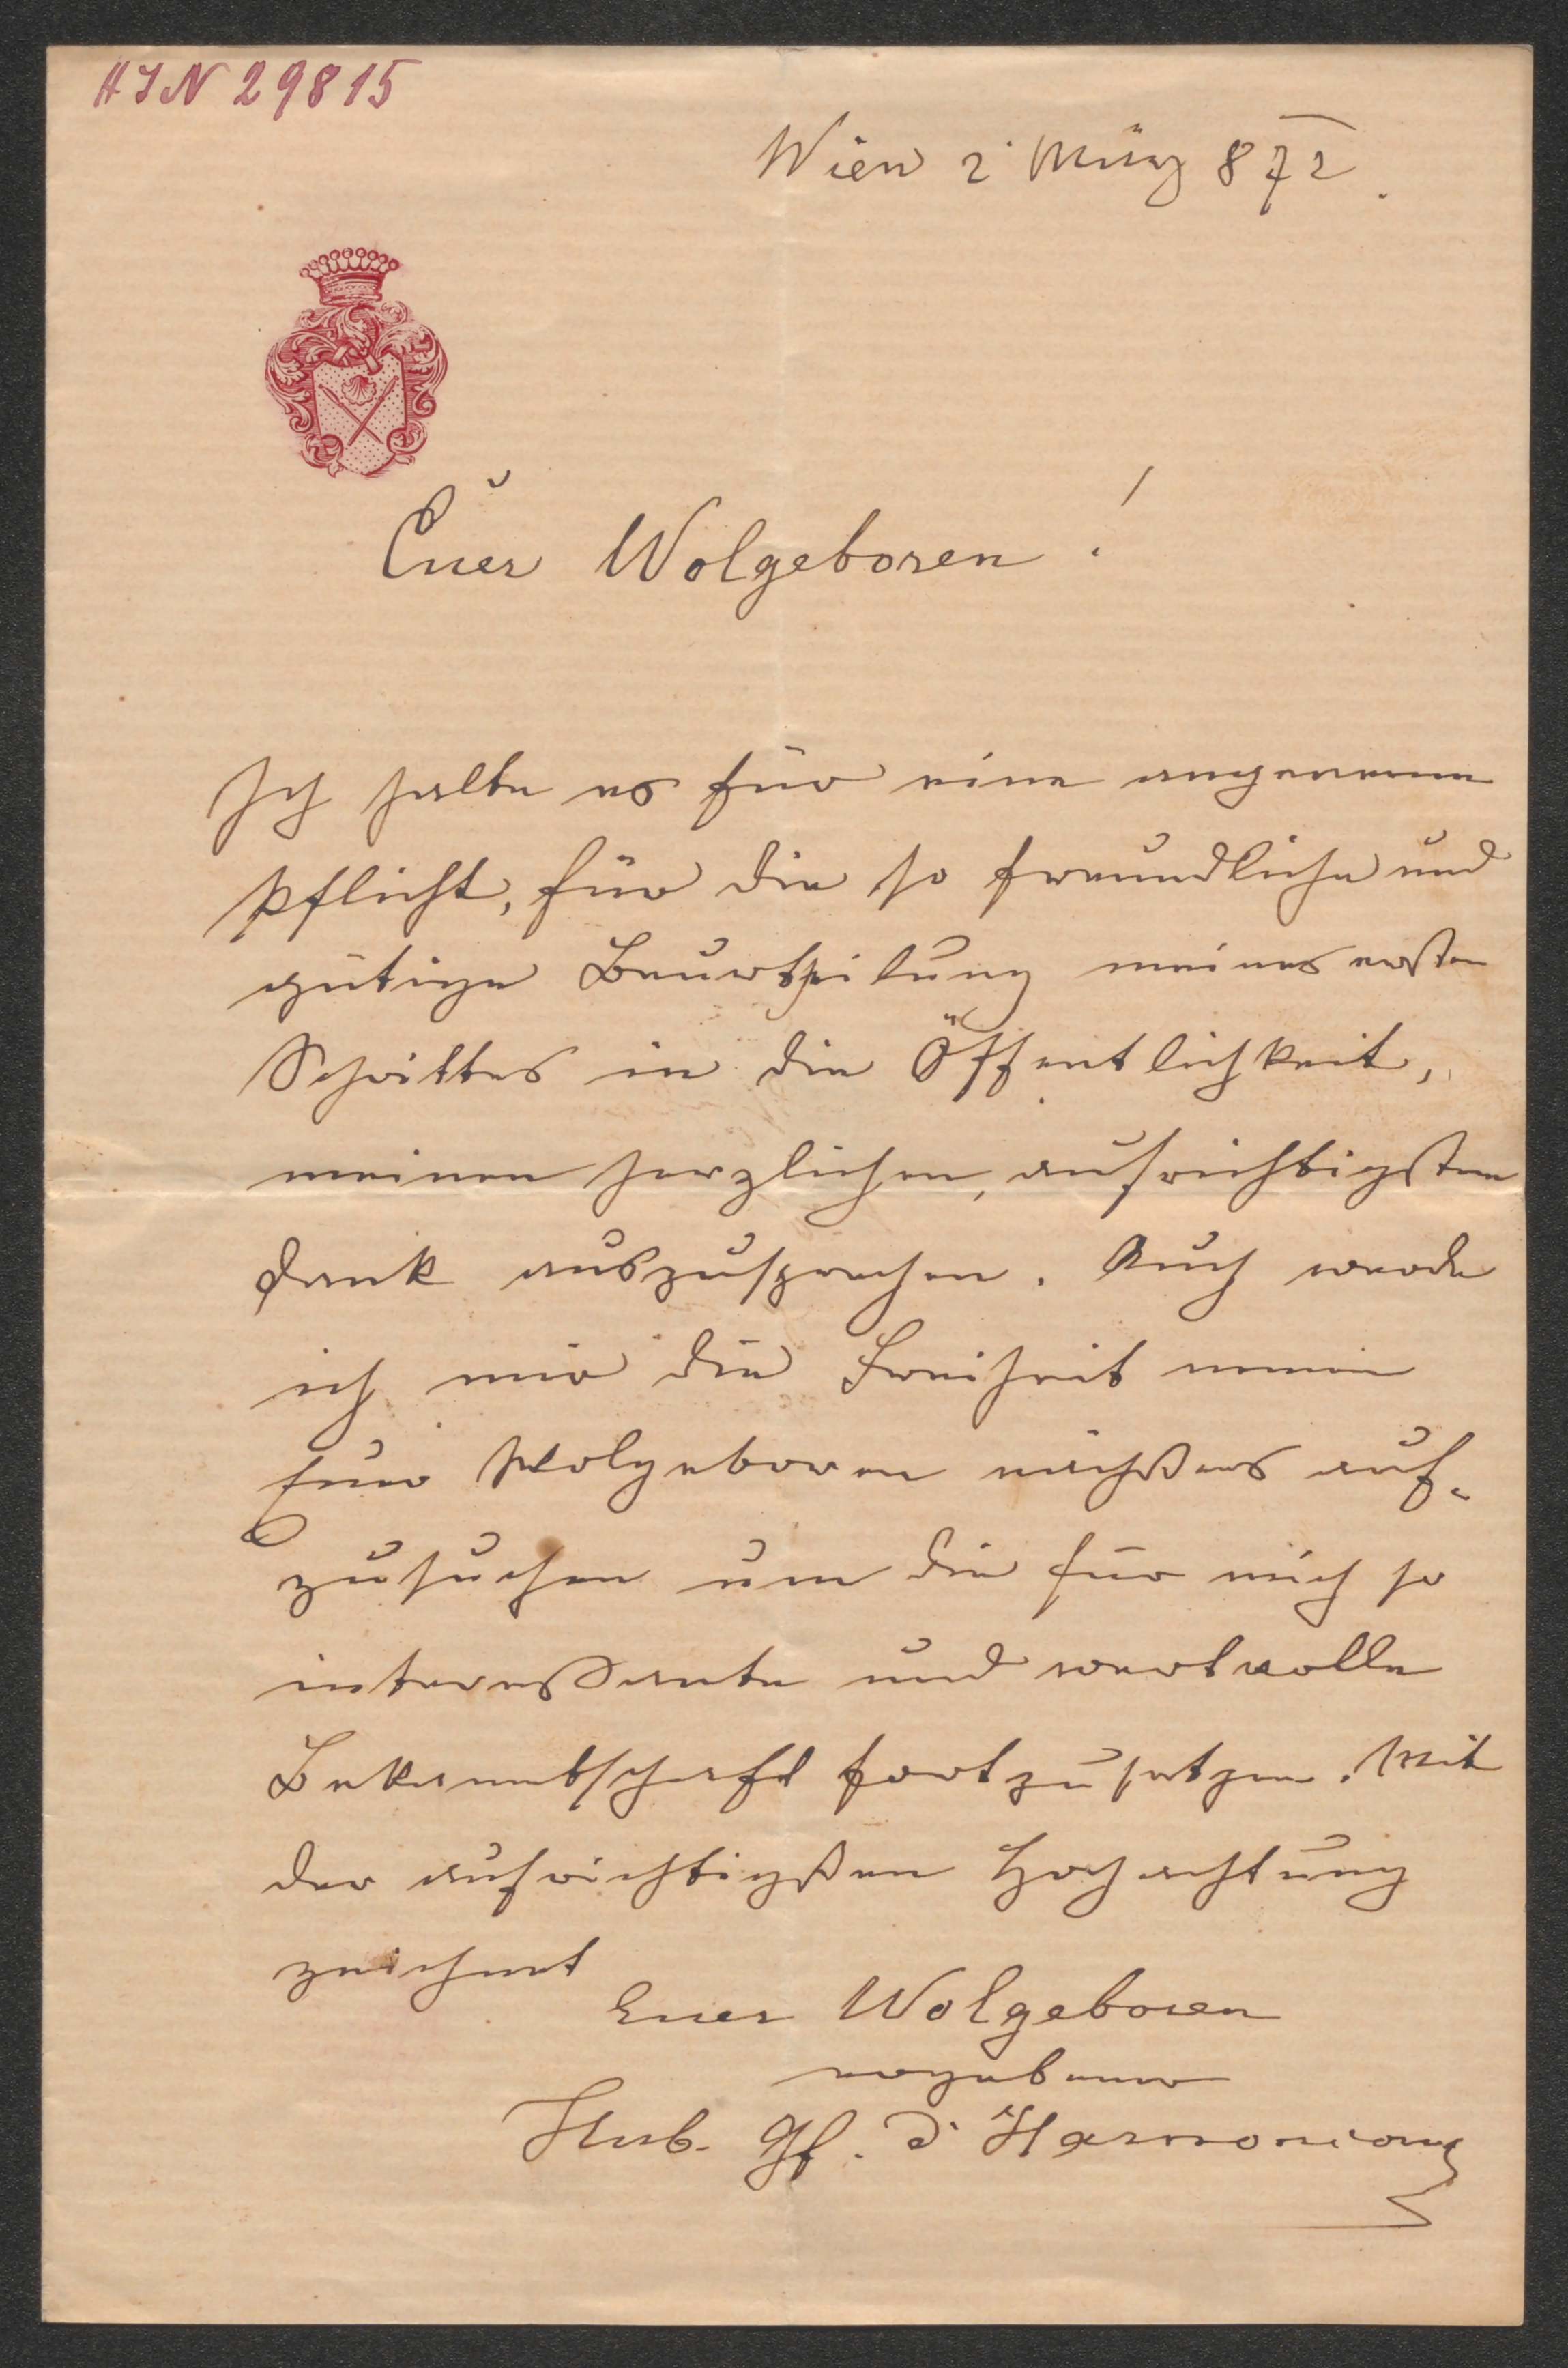 HIN 29815
Wien 2' März 872.
Euer Wolgeboren!
Ich halte es für eine angeneme
Pflicht, für die so freundliche und
gütige Beurtheilung meines ersten
Schrittes in die Öffentlichkeit,
meinen herzlichen, aufrichtigsten
Dank auszusprechen. Auch werde
ich mir die Freiheit nemen
Euer Wolgeboren nächstens auf-
zusuchen um die für mich so
interessante und wertvolle
Bekanntschaft fortzusetzen. Mit
der aufrichtigsten Hochachtung
zeichnet
Euer Wolgeboren
ergebener
Hub. Gf. d'Harnoncourt